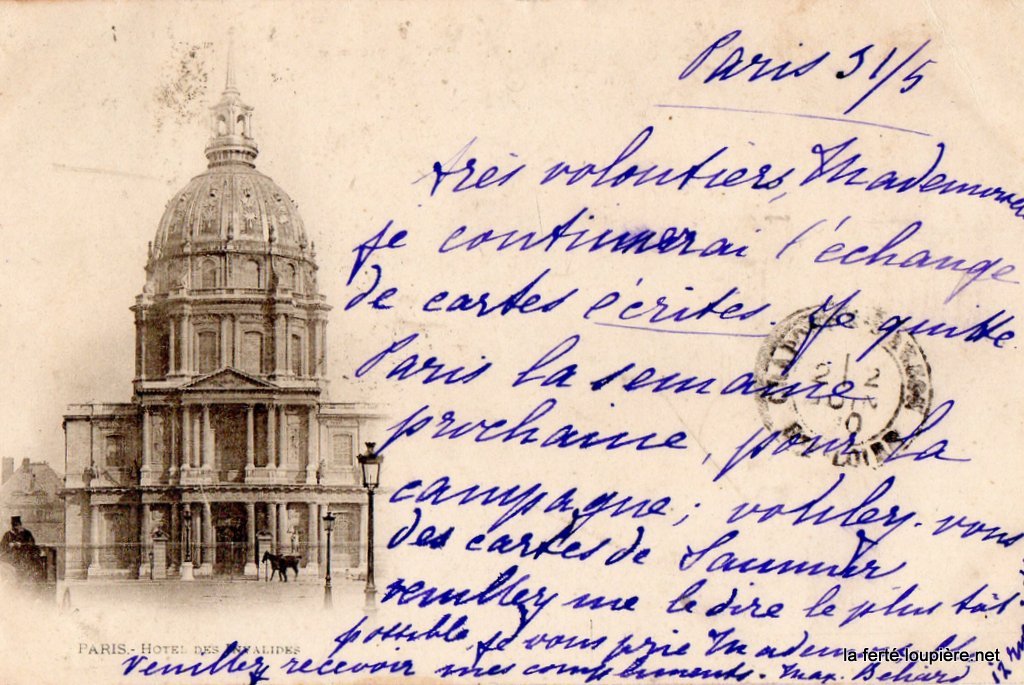 Paris 31/5
très volontiers, Mademoise
je continuerai l'échange
de cartes écrites. Je quitte
Paris la semaine
prochaine, pour la
campagne; voulez-vous
des cartes de Saumur
veuillez me le dire le plus tôt
possible, je vous prie Mademoiselle
Veuillez recevoir mes compliments. Max. Behard
PARIS.- HOTEL DES INVALIDES
2
JUIN
LOIRE
la-ferté-loupière.net